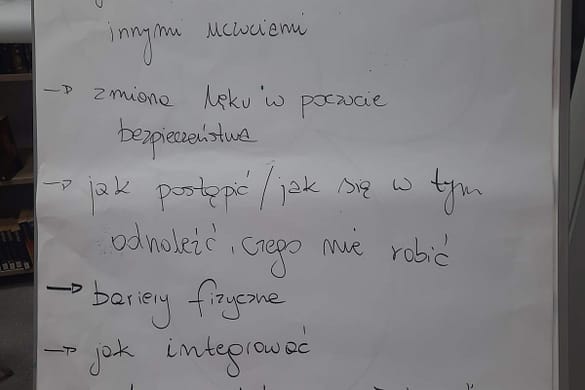 innymi uczuciami
→ zmiana lęku w poczucie
bezpieczeństwa
→ jak postąpić / jak się w tym
odnaleźć, czego nie robić
→ bariery fizyczne
→ jak integrować